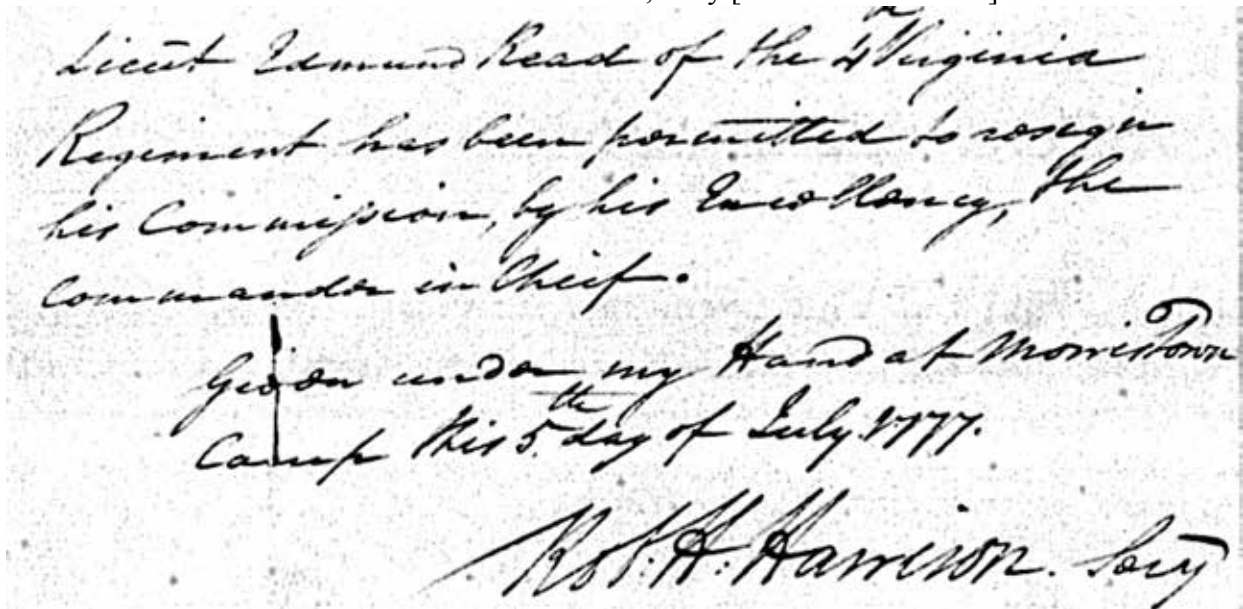 Lieut Edmund Read of the 4th Virginia
Regiment has been permitted to resign
his Commission, by his Excellency, the
Commander in Chief.
Given under my Hand at Morristown
Camp this 5th day of July 1777.
Rob: H: Harrison. Secy